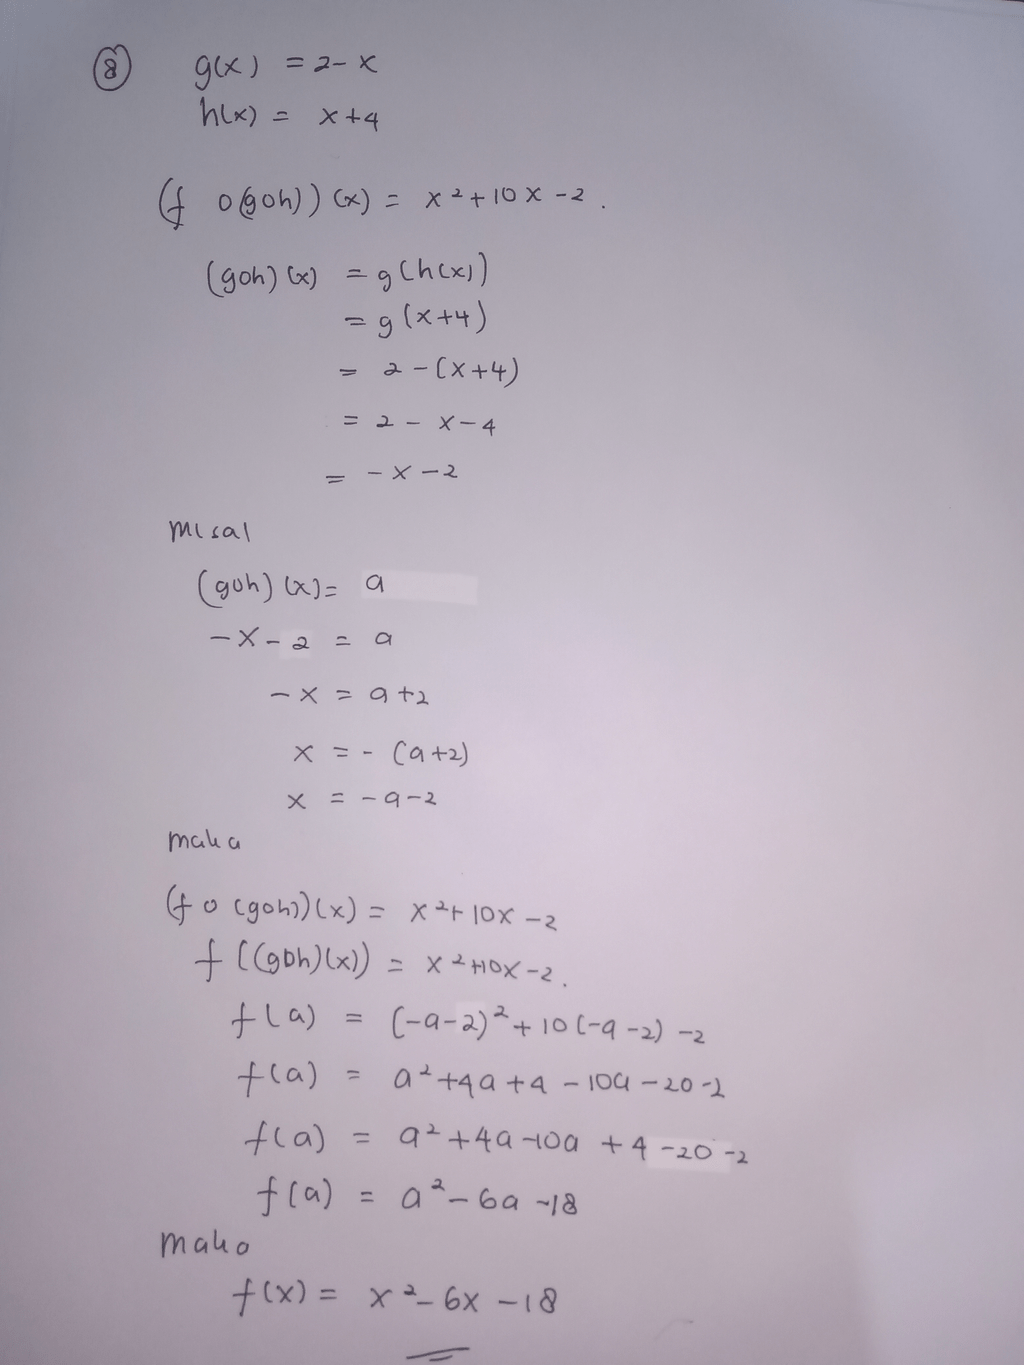 8 g(x) = 2-x
h(x) = x+4
(f o(goh))(x) = x²+10x-2.
(goh)(x) = g(h(x))
= g(x+4)
= 2-(x+4)
= 2-x-4
= -x-2
misal
(goh)(x) = a
-x-2 = a
-x = a+2
x = -(a+2)
x = -a-2
maka
(fo(goh))(x) = x²+10x-2
f((goh)(x)) = x²+10x-2.
f(a) = (-a-2)²+10(-a-2)-2
f(a) = a²+4a+4-10a-20-2
f(a) = a²+4a-10a+4-20-2
f(a) = a²-6a-18
maka
f(x) = x²-6x-18